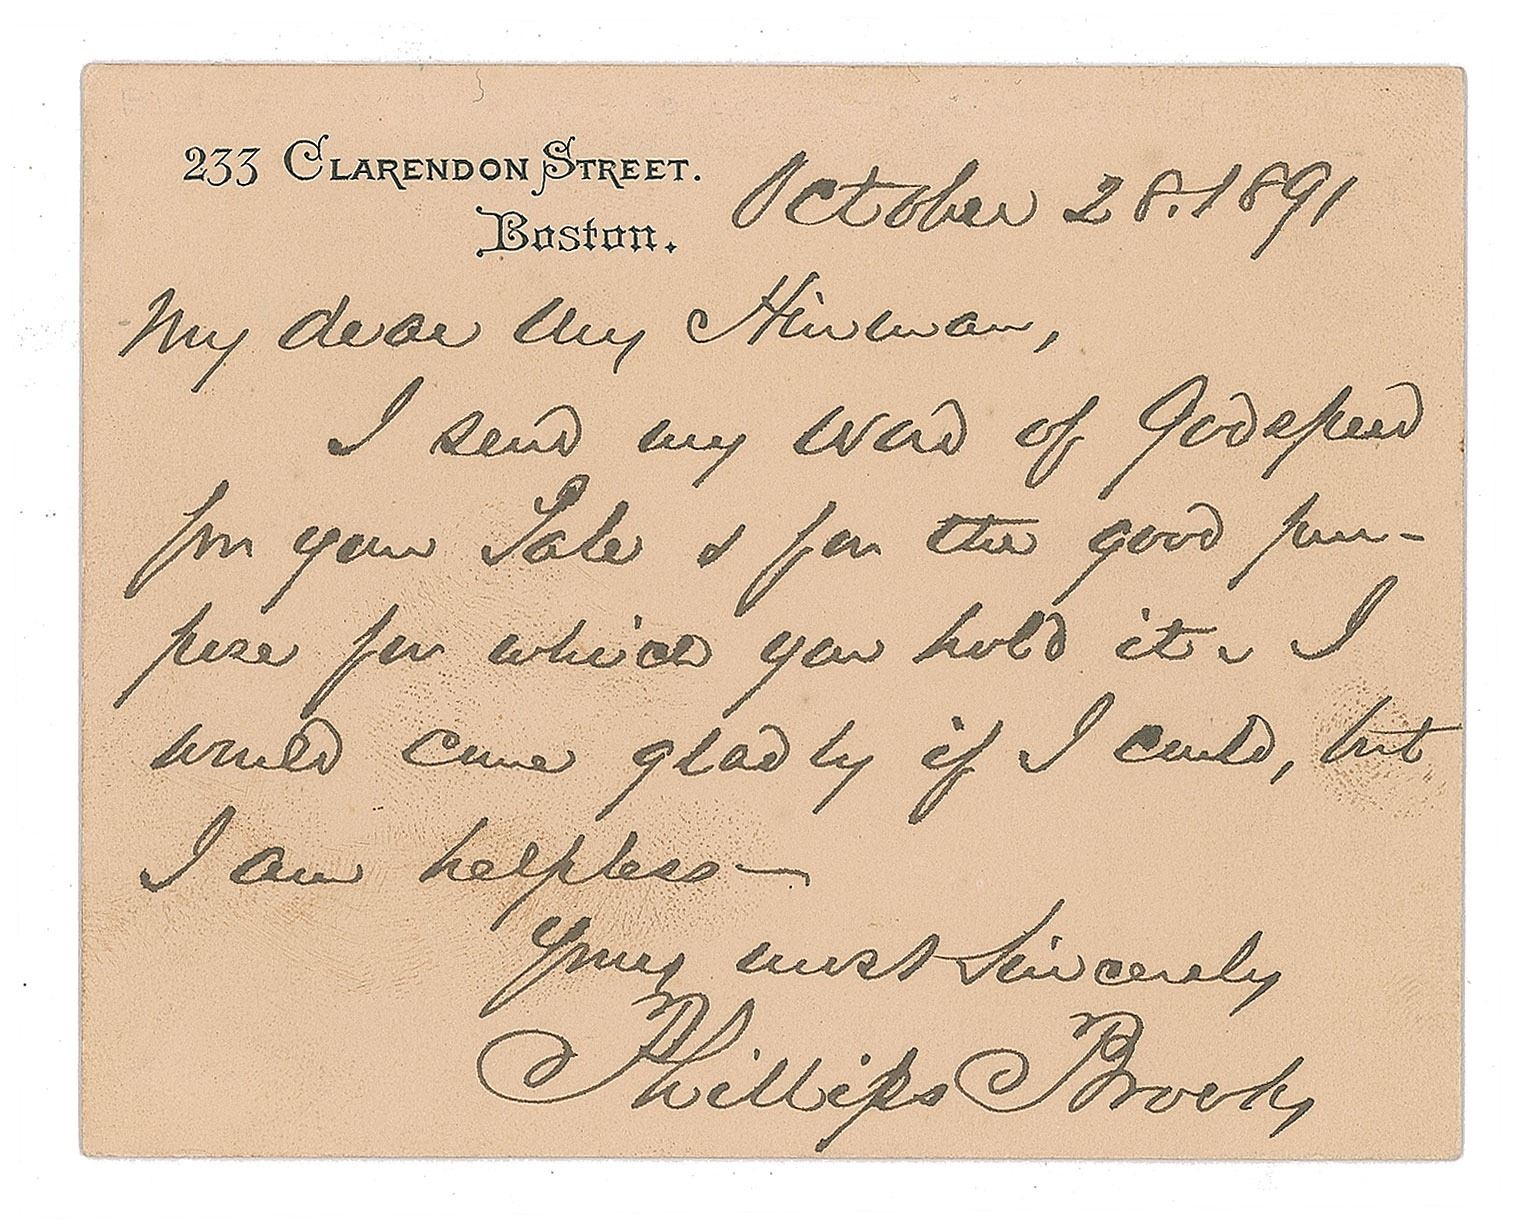 233 CLARENDON STREET.
Boston.
October 28. 1891
My dear Hinman,
I send my word of Godspeed
for your Sale & for the good pur-
pose for which you hold it. I
would come gladly if I could, but
I am helpless—
Yours most sincerely
Phillips Brooks